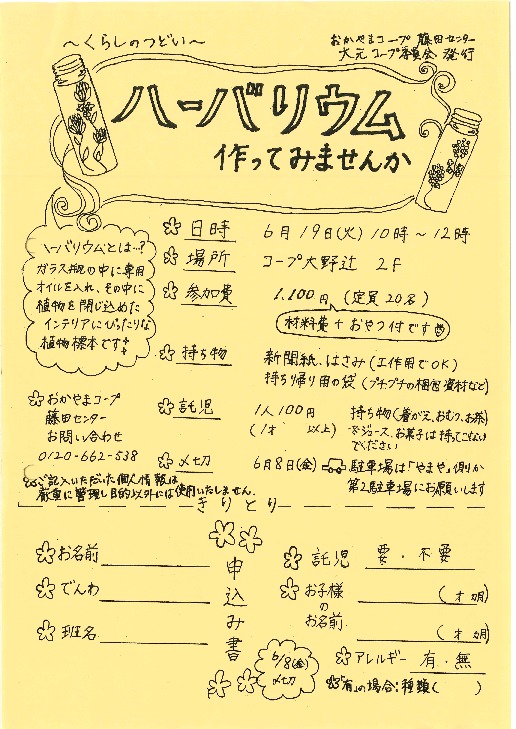 ～くらしのつどい～
おかやまコープ 藤田センター
大元コープ委員会 発行
ハーバリウム
作ってみませんか
ハーバリウムとは…?
ガラス瓶の中に専用
オイルを入れ、その中に
植物を閉じ込めた
インテリアにぴったりな
植物標本です
日時 6月19日(火) 10時～12時
場所 コープ大野辻 2F
参加費 1,100円 (定員20名)
材料費+おやつ付です
持ち物 新聞紙、はさみ(工作用でOK)
持ち帰り用の袋(プチプチの梱包資材など)
託児 1人100円
(1才 以上)
持ち物(着がえ、おむつ、お茶)
※ジュース、お菓子は持ってこない
でください
〆切 6月8日(金)
駐車場は「やまや」側か
第2駐車場にお願いします
おかやまコープ
藤田センター
お問い合わせ
0120-662-538
ご記入いただいた個人情報は
厳重に管理し目的以外には使用いたしません。
きりとり
申込み書
6/8(金)
〆切
お名前
でんわ
班名
託児 要・不要
お子様
の
お名前
(才 ヵ月)
(才 ヵ月)
アレルギー 有・無
「有」の場合:種類( )